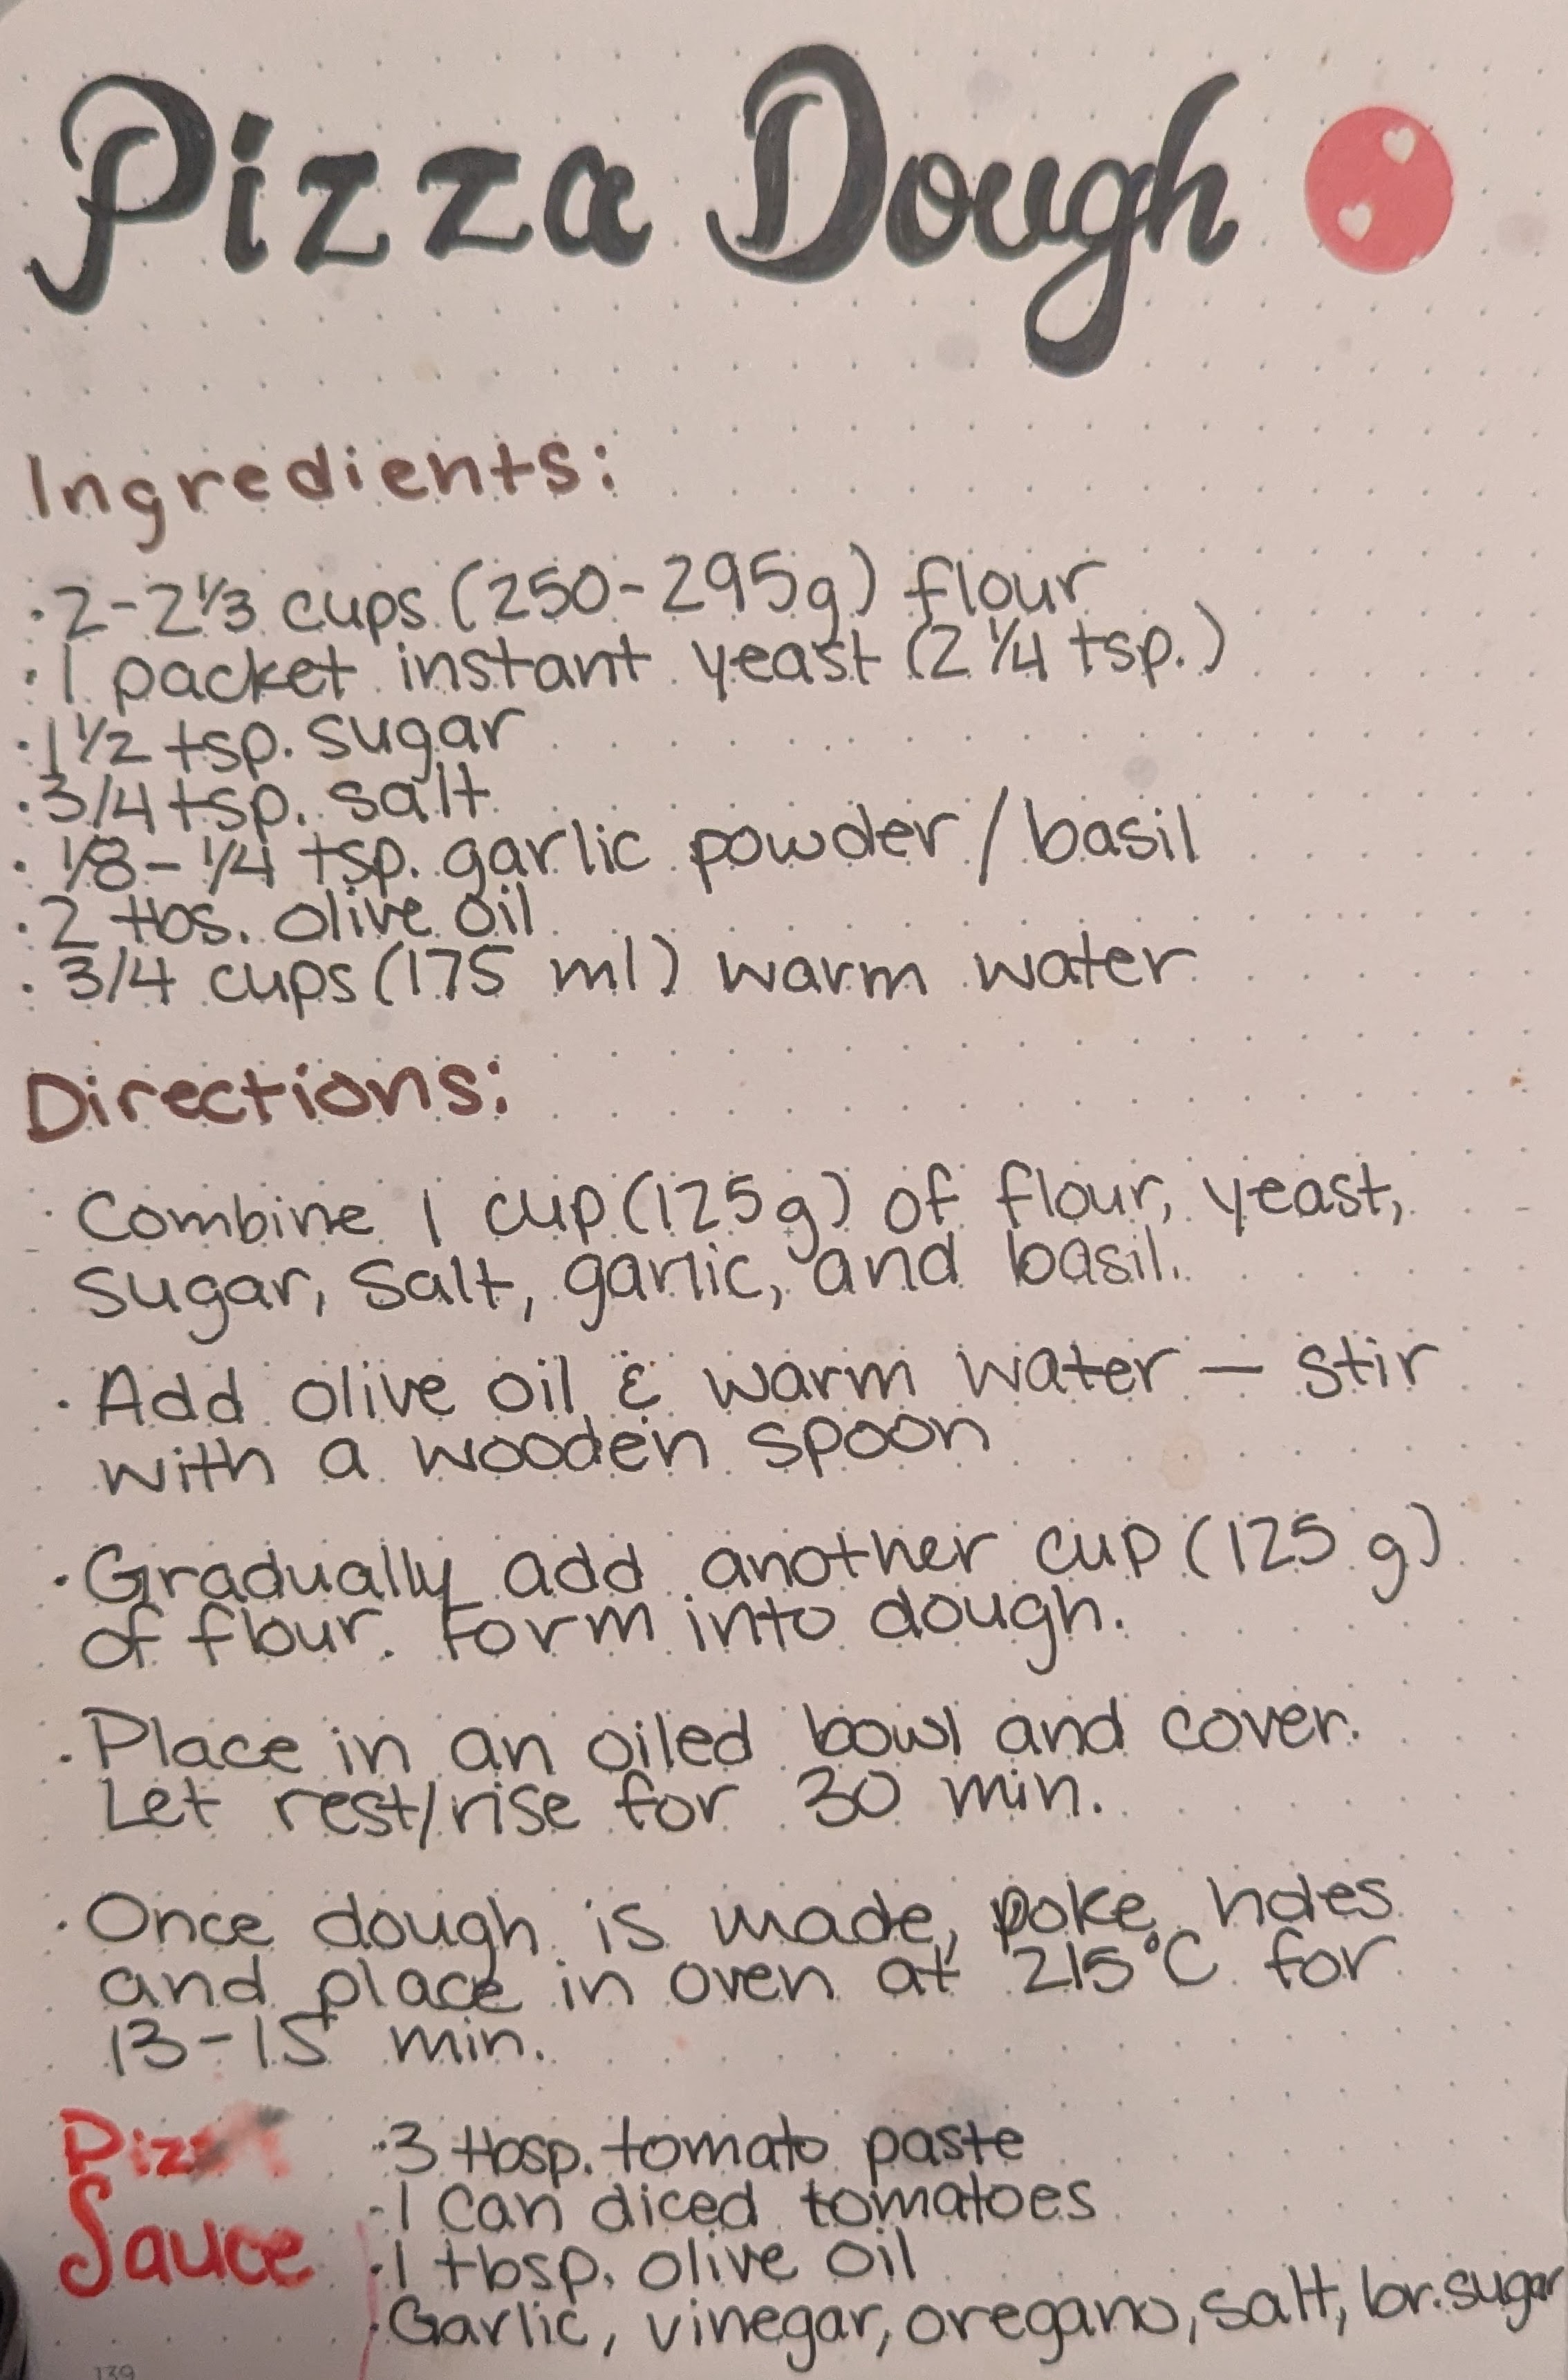 Pizza Dough
Ingredients:
·2-2 1/3 cups (250-295g) flour
·1 packet instant yeast (2 1/4 tsp.)
·1 1/2 tsp. sugar
·3/4 tsp. salt
·1/8-1/4 tsp. garlic powder/basil
·2 tbs. olive oil
·3/4 cups (175 ml) warm water
Directions:
·Combine 1 cup (125g) of flour, yeast,
sugar, salt, garlic, and basil.
·Add olive oil & warm water — stir
with a wooden spoon
·Gradually add another cup (125 g)
of flour. Form into dough.
·Place in an oiled bowl and cover.
Let rest/rise for 30 min.
·Once dough is made, poke holes
and place in oven at 215°C for
13-15 min.
Pizza
Sauce
·3 tbsp. tomato paste
·1 can diced tomatoes
·1 tbsp. olive oil
·Garlic, vinegar, oregano, salt, br. sugar
139